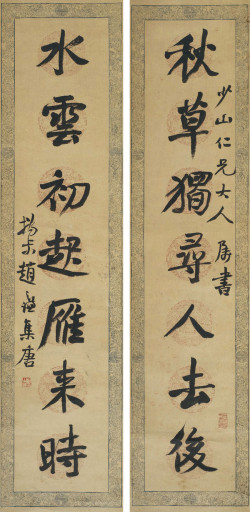 秋草獨尋人去後
少山仁兄大人屬書
水雲初起雁来時
撝叔趙之謙集唐